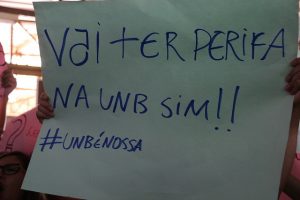 Vai TER PERIFA
NA UNB SIM!!
#UNBéNOSSA